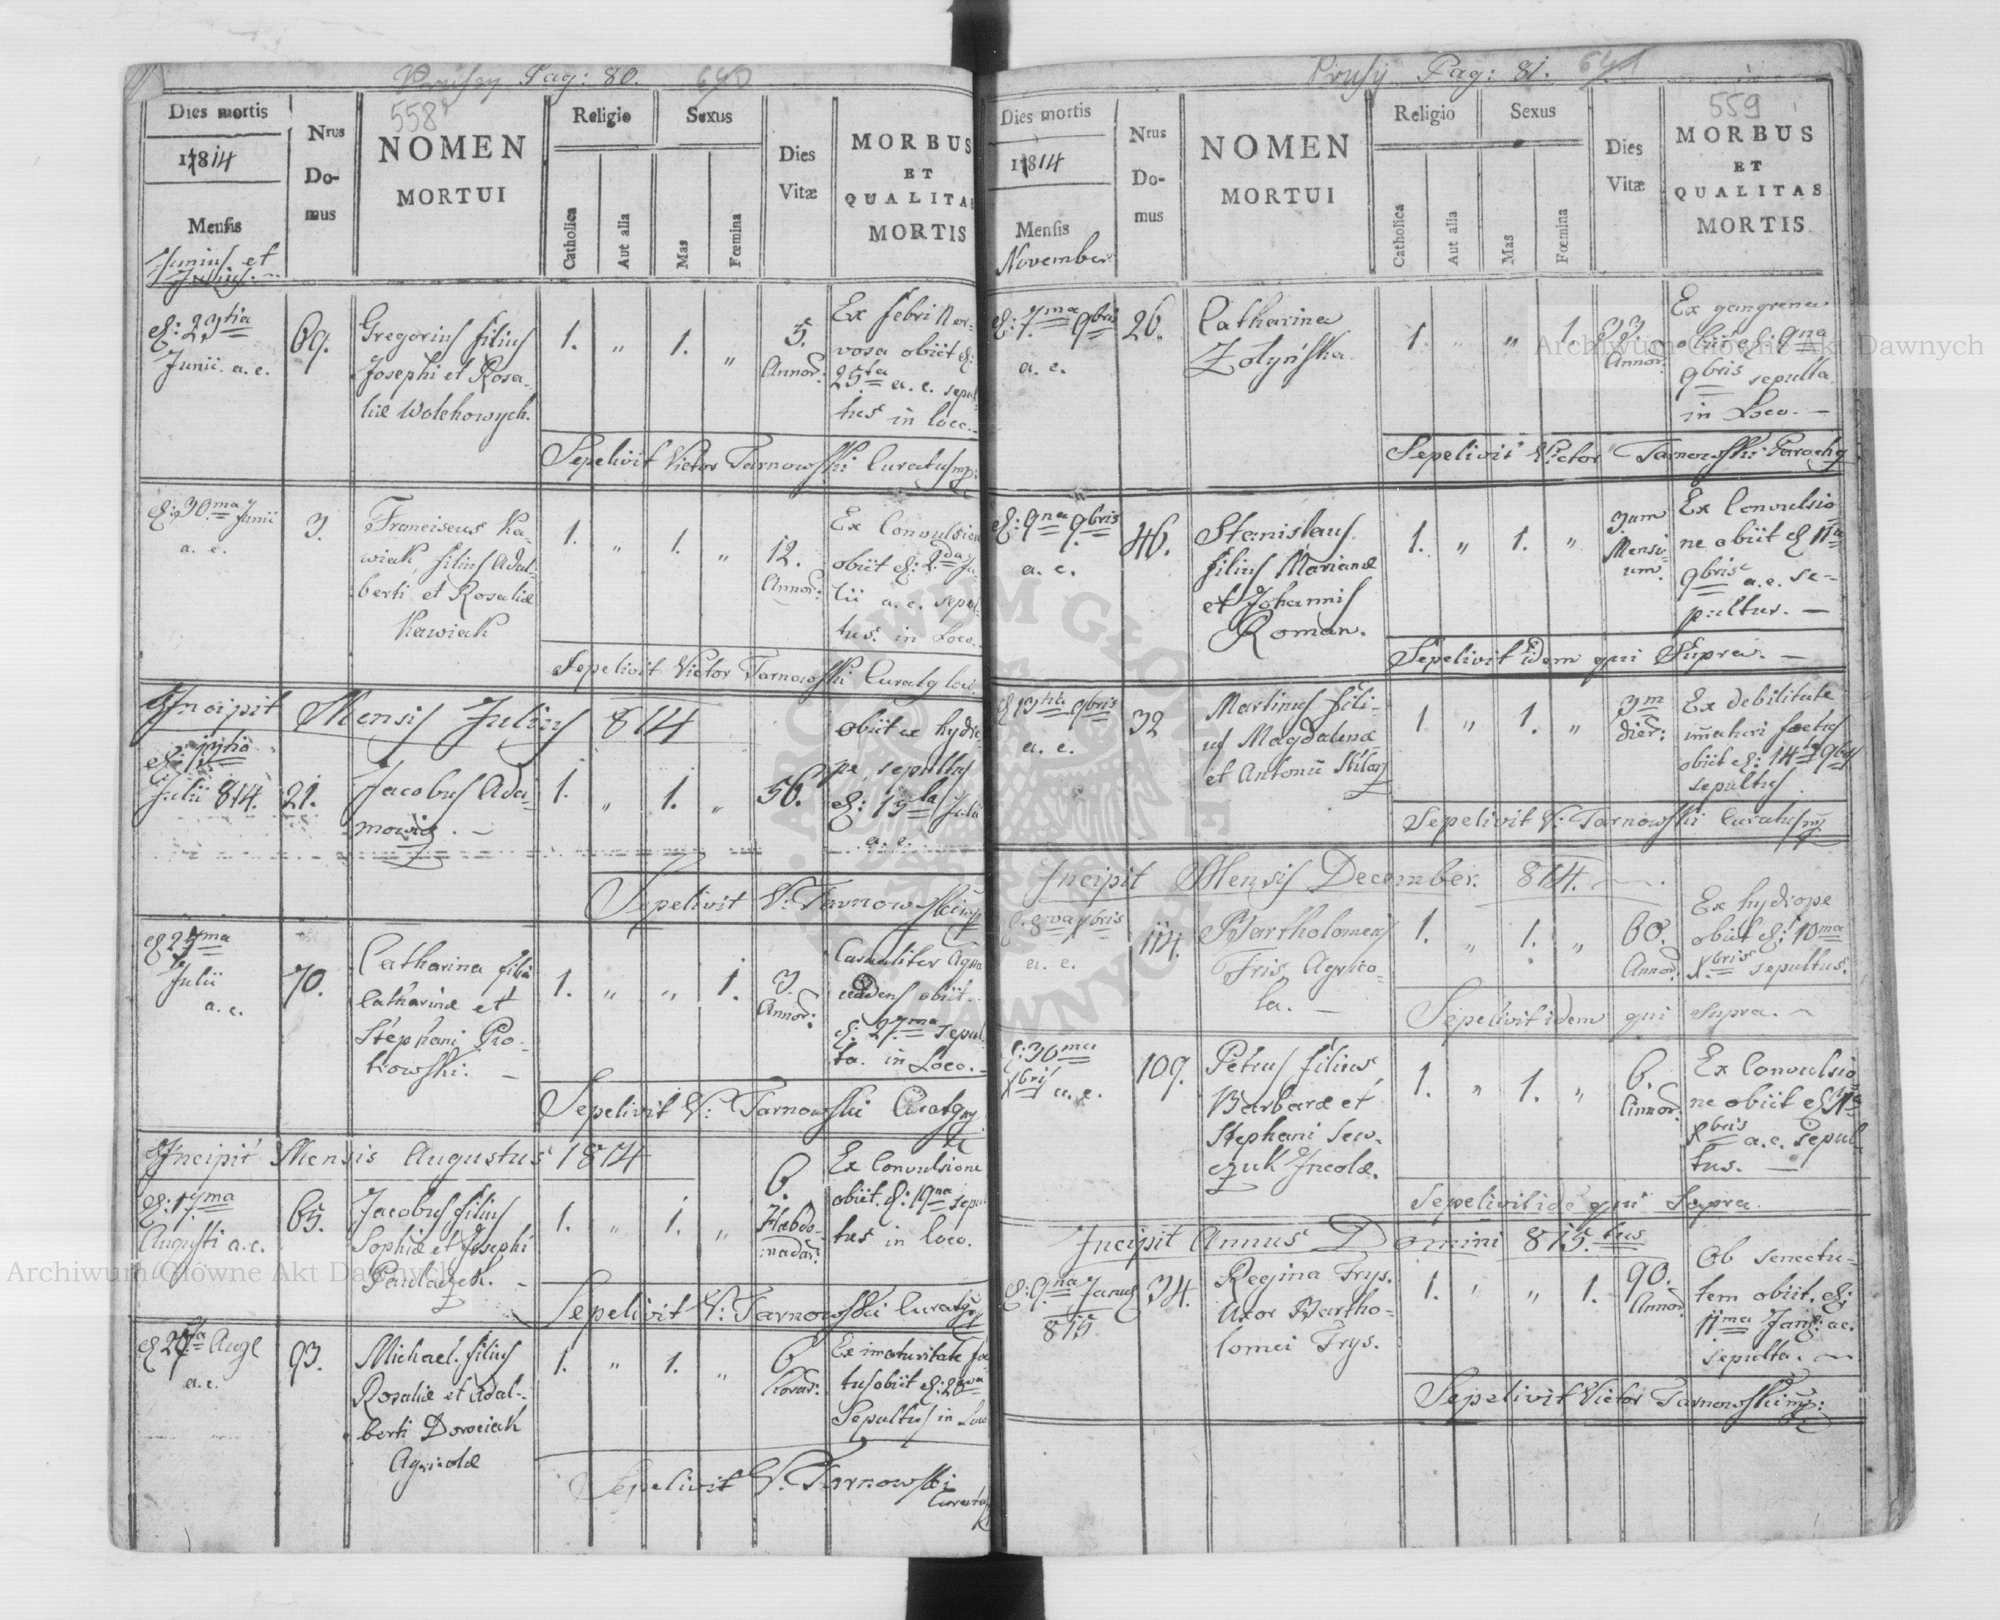 Pag: 80. 640
558
Dies mortis
1814
Mensis
Junius et
Julius.
Nrus
Do-
mus
NOMEN
MORTUI
Religio
Catholica
Aut alia
Sexus
Mas
Fœmina
Dies
Vitæ
MORBUS
ET
QUALITAS
MORTIS
d: 23tia
Junii. a. c.
69.
Gregorius filius
Josephi et Rosa-
liæ Wolchowych.
1. „ 1. „
5.
Annor:
Ex febri Ner-
vosa obiit d:
25ta a. c. sepul-
tus in loco.
Sepelivit Victor Tarnowski Curatus mp:
d: 30ma Junii
a. c.
3.
Franciscus Ka-
wiak, filius Adal-
berti et Rosaliæ
Kawiak
1. „ 1. „
12.
Annor:
Ex Convulsione
obiit d: 2da Ju-
lii a. c. sepul-
tus. in Loco.
Sepelivit Victor Tarnowski Curatq loci.
Incipit Mensis Julius 814
Julii 814.
21.
Jacobus Ada-
mowicz. —
1. „ 1. „
56.
obiit ex hydro-
pe, sepultus
d: 15ta Julii
a. c.
Sepelivit V: Tarnowski mp
d 25ma
Julii
a. c.
70.
Catharina filia
Catharinæ et
Stephani Pio-
trowski. —
1. „ „ 1.
3.
Annor:
Casualiter Aqua
cadens obiit.
d: 27ma sepul-
ta. in Loco. —
Sepelivit V: Tarnowski Curatq mp
Incipit Mensis Augustus 1814
d: 17ma
Augusti a. c.
65.
Jacobus filius
Sophiæ et Josephi
Paulaczek. —
1. „ 1. „
6.
Hebdo-
madar:
Ex Convulsione
obiit. d: 19na sepul-
tus in loco.
Sepelivit V: Tarnowski Curatq mp
d 27a Augs
a. c.
93.
Michael. filius
Rosaliæ et Adal-
berti Dorociak
Agricolæ
1. „ 1. „
6
horar:
Ex imaturitate fæ-
tus obiit d: 28va
Sepultus in Loco
Sepelivit V. Tarnowski
Curatus
Prusy Pag: 81. 641
559
Dies mortis
1814
Mensis
November
Nrus
Do-
mus
NOMEN
MORTUI
Religio
Catholica
Aut alia
Sexus
Mas
Fœmina
Dies
Vitæ
MORBUS
ET
QUALITAS
MORTIS.
d: 7ma 9bris
a. c.
26.
Catharina
Zołyńska.
1. „ „ 1.
33.
Annor:
Ex gangrena
obiit d: 9na
9bris sepulta.
in Loco. —
Sepelivit Victor Tarnowski Parochq
d: 9na 9bris
a. c.
46.
Stanislaus
filius Marianæ
et Johannis
Roman.
1. „ 1. „
3um
Mensi-
um.
Ex Convulsio-
ne obiit d 11a
9bris a. c. se-
pultus. —
Sepelivit idem qui Supra. —
d 13tia 9bris
a. c.
32
Martinus fili-
us Magdalenæ
et Antonii
1 „ 1. „
3m
dier:
Ex debilitate
immaturi foetus
obiit d: 14ta 9bris
sepultus.
Sepelivit V: Tarnowski Curatus mp
Incipit Mensis December. 814. —
d: 8va Xbris
a. c.
114.
Bartholomeus
Fris Agrico-
la. —
1. „ 1. „
60.
Annor:
Ex hydrope
obiit d: 10ma
Xbris sepultus.
Sepelivit idem qui supra. —
d: 30ma
Xbris a. c.
109.
Petrus filius
Barbaræ et
Stephani Sew-
czuk Incolæ.
1. „ 1. „
6.
Annor:
Ex Convulsio-
ne obiit d 31a
Xbris a. c. sepul-
tus. —
Sepelivit idē qui Supra.
Incipit Annus Domini 815.tus
d: 9na Januar
815.
34.
Regina Frys.
Uxor Bartho-
lomei Frys.
1. „ „ 1.
90.
Annor:
Ob senectu-
tem obiit. d:
11ma Jan: a c.
sepulta. —
Sepelivit Victor Tarnowski mp:
Archiwum Główne Akt Dawnych
Archiwum Główne Akt Dawnych
ARCHIWUM GŁÓWNE AKT DAWNYCH